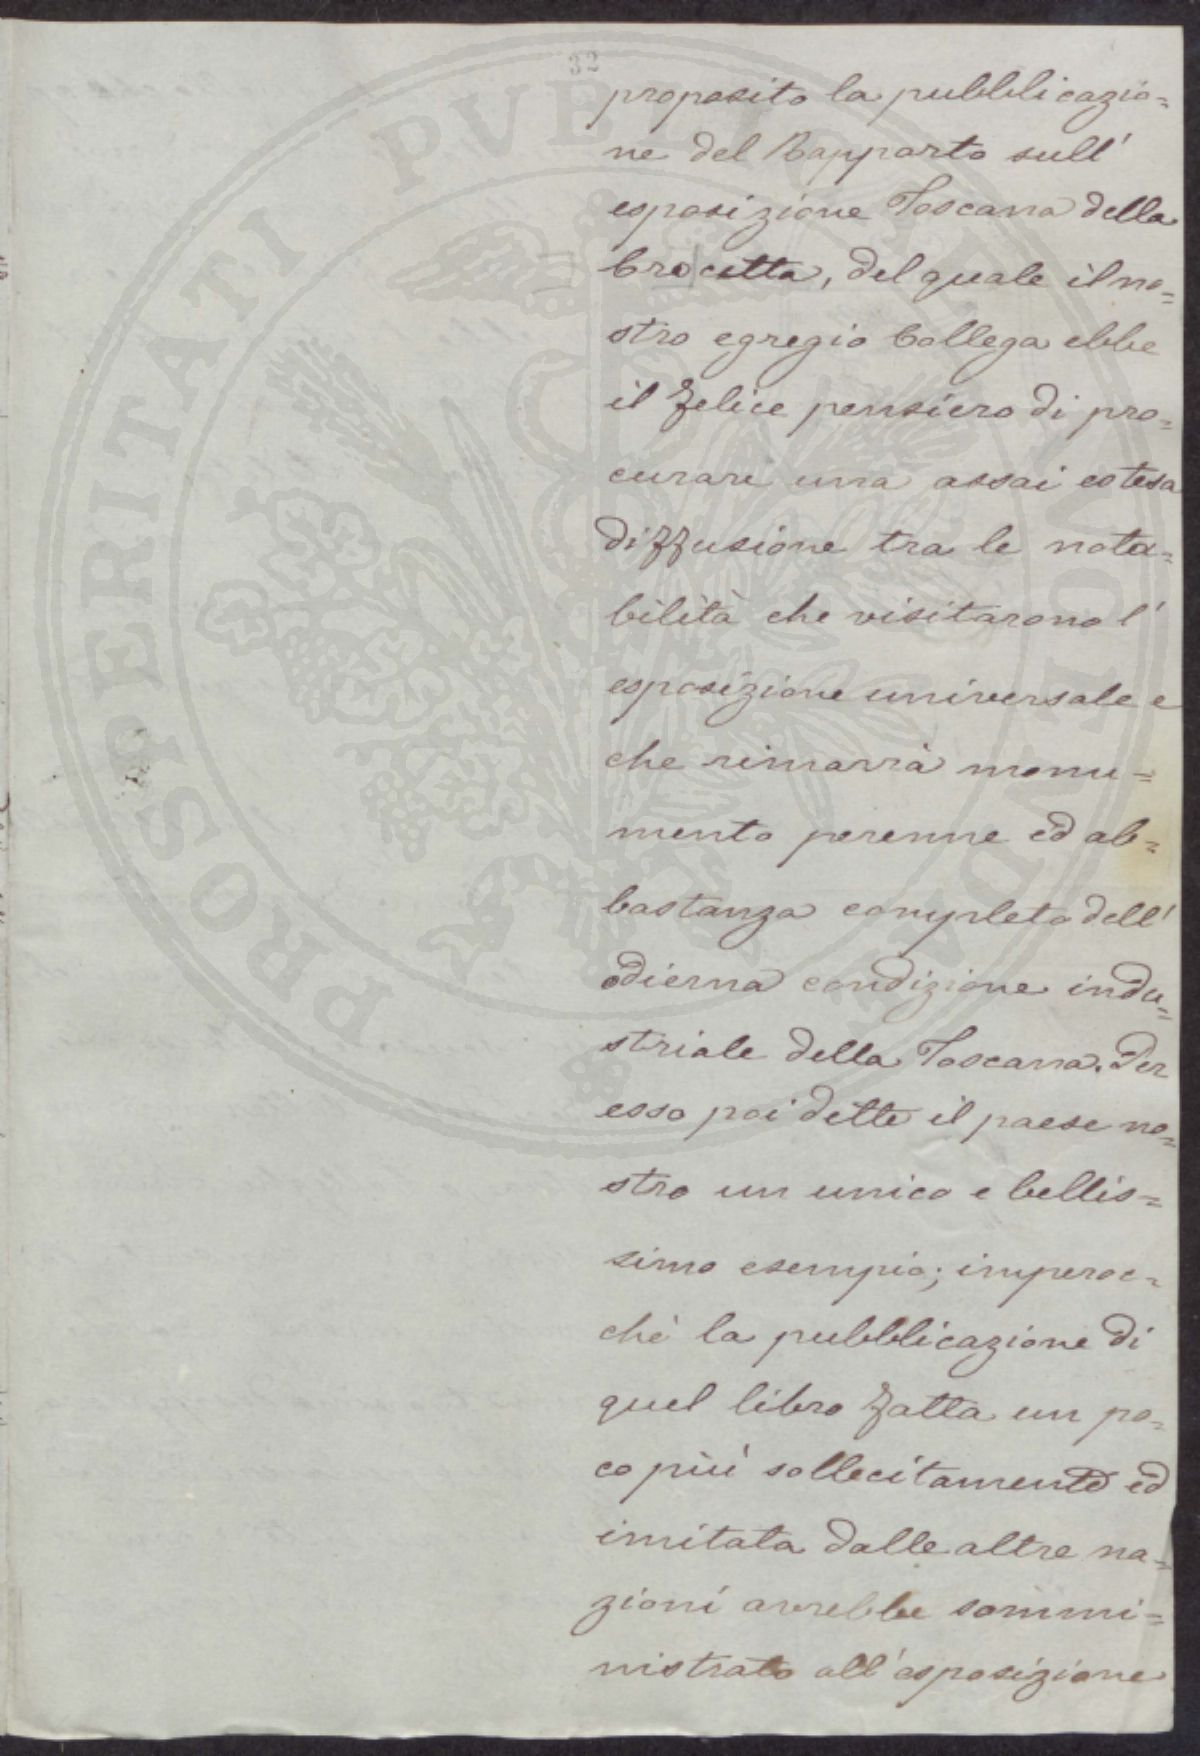 32
proposito la pubblicazio=
ne del Rapporto sull'
esposizione Toscana della
Crocetta, del quale il no=
stro egregio Collega ebbe
il felice pensiero di pro=
curare una assai estesa
diffusione tra le nota=
bilità che visitarono l'
esposizione universale e
che rimarrà monu=
mento perenne ed ab=
bastanza completo dell'
odierna condizione indu=
striale della Toscana. Per
esso poi dette il paese no=
stro un unico e bellis=
simo esempio; imperoc=
chè la pubblicazione di
quel libro fatta un po=
co più sollecitamente ed
imitata dalle altre na=
zioni avrebbe sommi=
nistrato all'esposizione
PROSPERITATI PVBLICAE